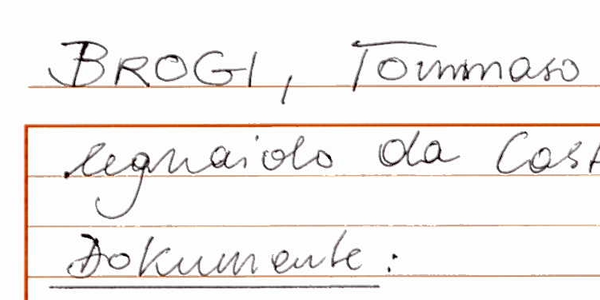 BROGI, Tommaso
legnaiolo da Cast
Dokumente: